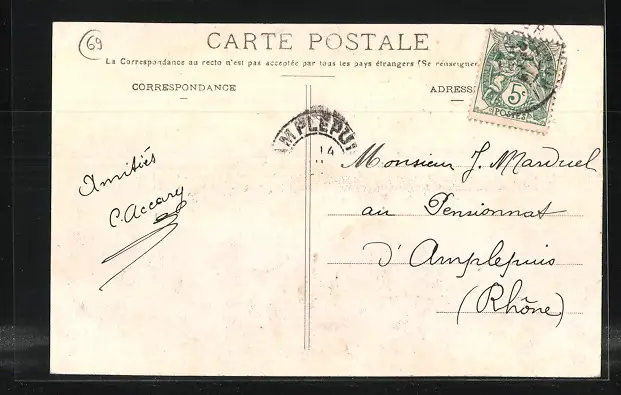 69
CARTE POSTALE
La Correspondance au recto n'est pas acceptée par tous les pays étrangers (Se renseigner
CORRESPONDANCE
ADRESS
5c
POSTES
AMPLEPUI
14
Amitiés
C. Accary
Monsieur J. Marduel
au Pensionnat
d'Amplepuis
(Rhône)